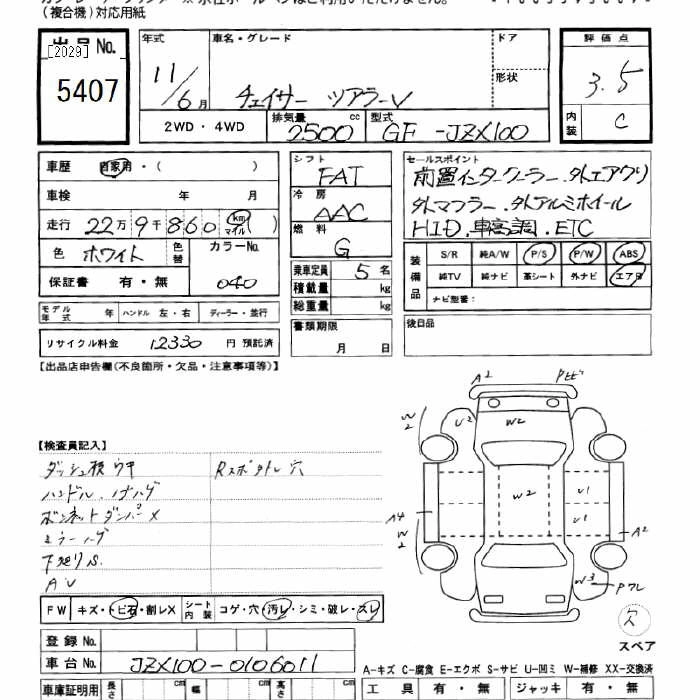 (複合機)対応用紙
出品No.
[2029]
5407
年式
11/6月
車名・グレード
チェイサー ツアラーV
ドア
形状
評価点
3.5
内装
C
2WD・4WD
排気量
2500
cc
型式
GF-JZX100
車歴
自家用・( )
車検
年 月
走行
22万9千860
km
マイル
( )
色
ホワイト
色替
カラーNo.
040
保証書
有・無
モデル年式
年
ハンドル 左・右
ディーラー・並行
リサイクル料金
12330
円 預託済
シフト
FAT
冷房
AAC
燃料
G
乗車定員
5名
積載量
kg
総重量
kg
書類期限
月 日
セールスポイント
前置インタークーラー.外エアクリ
外マフラー.外アルミホイール
HID.車高調.ETC
装備品
S/R
純A/W
P/S
P/W
ABS
純TV
純ナビ
革シート
外ナビ
エアB
ナビ型番:
後日品
【出品店申告欄(不良箇所・欠品・注意事項等)】
【検査員記入】
ダッシュ板ウキ
Rスポタトレ穴
ボンネットダンパー×
ミラーハゲ
下廻りS.
AV
A2
W2
U2
W2
W2
U1
U1
A4
W2
A2
W3
欠
スペア
FW
キズ・トビ石・割レX
シート内装
コゲ・穴・汚レ・シミ・破レ・スレ
登録No.
車台No.
JZX100-0106011
車庫証明用
長さ
cm
幅
cm
高さ
cm
A-キズ C-腐食 E-エクボ S-サビ U-凹ミ W-補修 XX-交換済
工具
有・無
ジャッキ
有・無